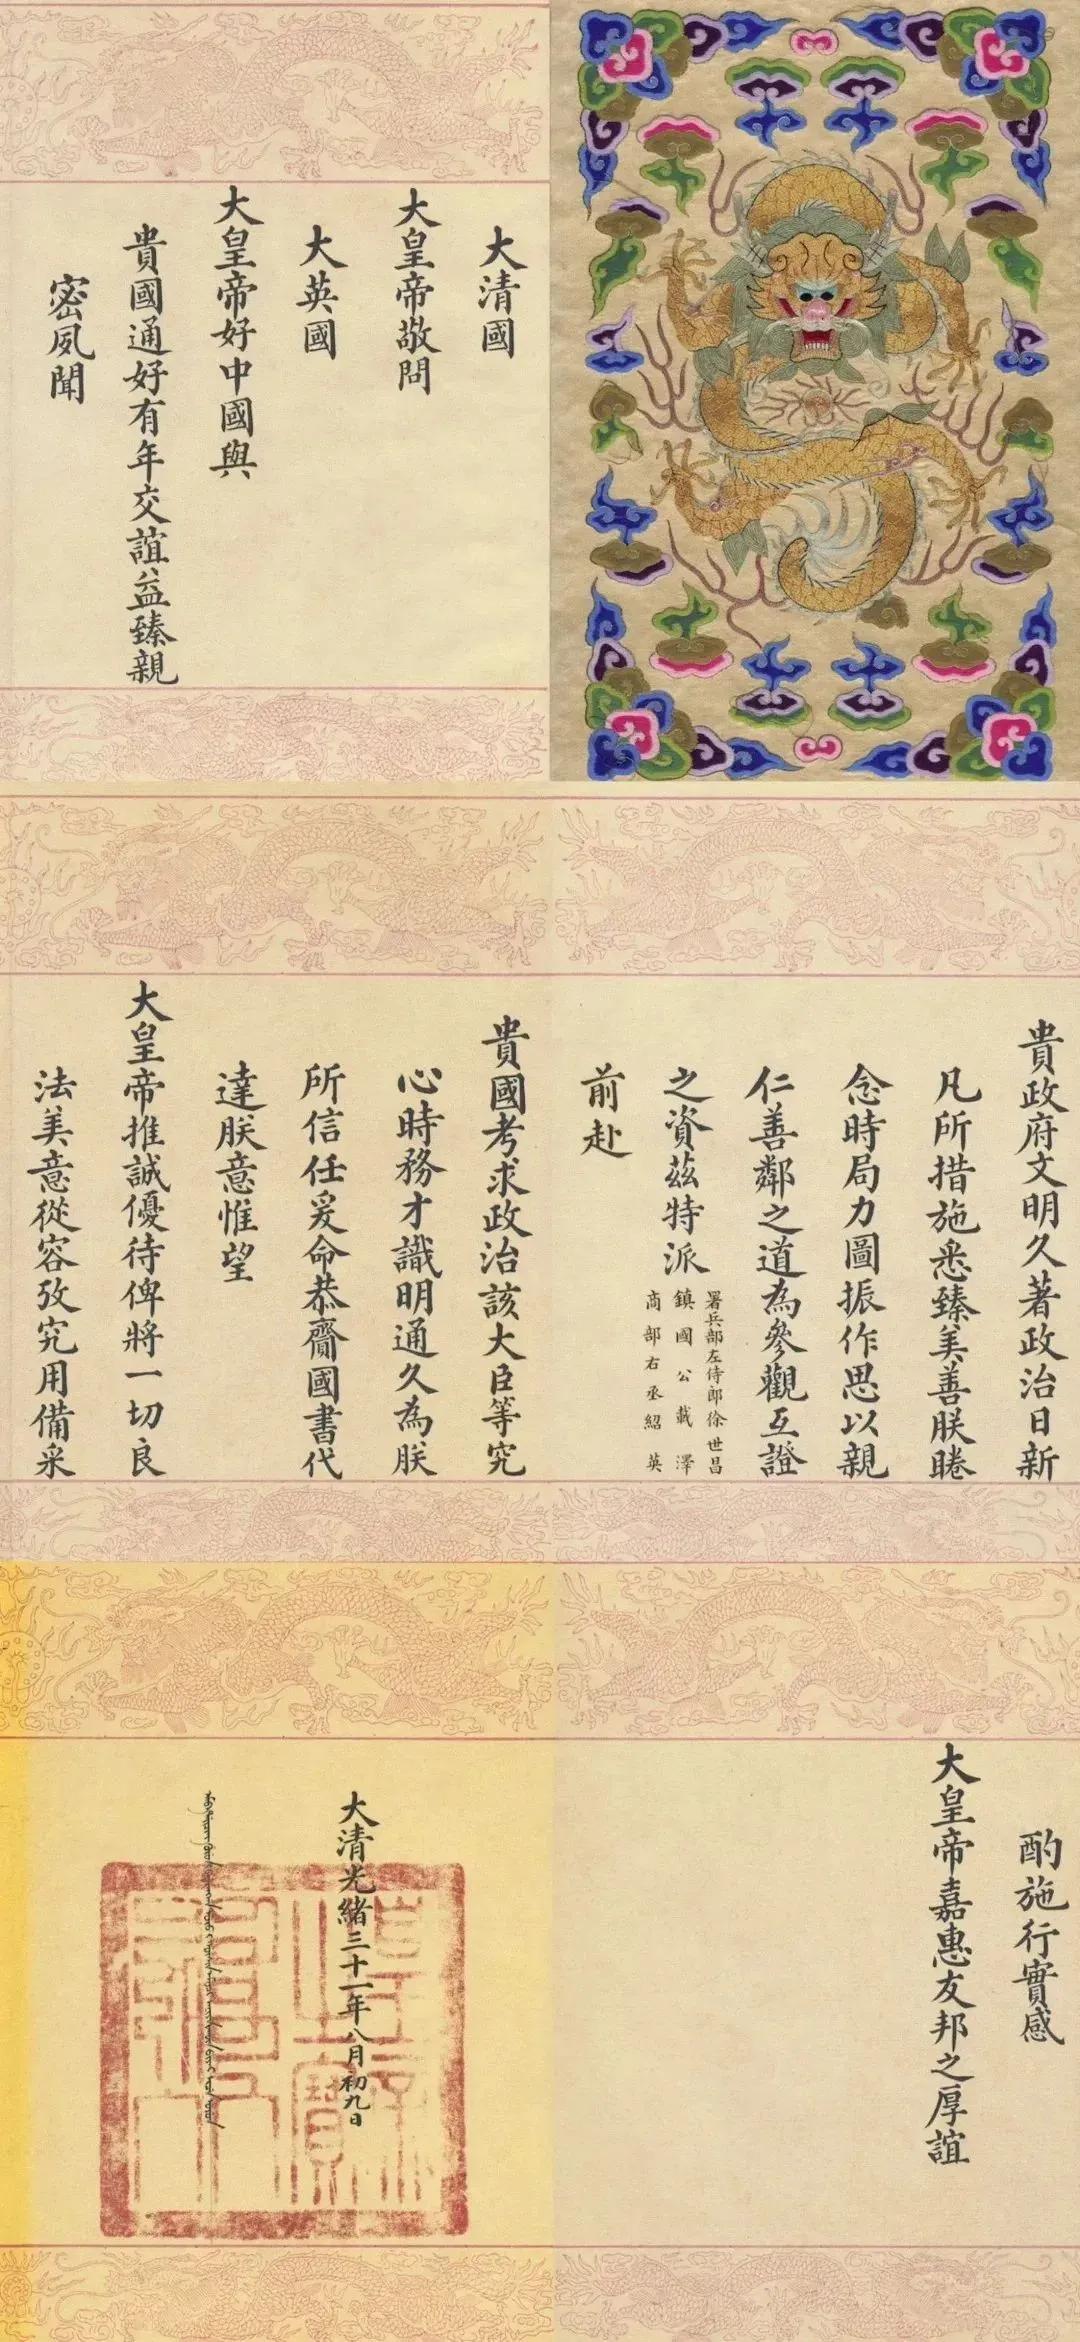 大清國
大皇帝敬問
大英國
大皇帝好中國與
貴國通好有年交誼益臻親
密夙聞
貴政府文明久著政治日新
凡所措施悉臻美善朕睠
念時局力圖振作思以親
仁善鄰之道為參觀互證
之資茲特派
署兵部左侍郎徐世昌
鎮國公載澤
商部右丞紹英
前赴
貴國考求政治該大臣等究
心時務才識明通久為朕
所信任爰命恭齎國書代
達朕意惟望
大皇帝推誠優待俾將一切良
法美意從容攷究用備采
酌施行實感
大皇帝嘉惠友邦之厚誼
大清光緒三十一年八月初九日
皇帝之寶